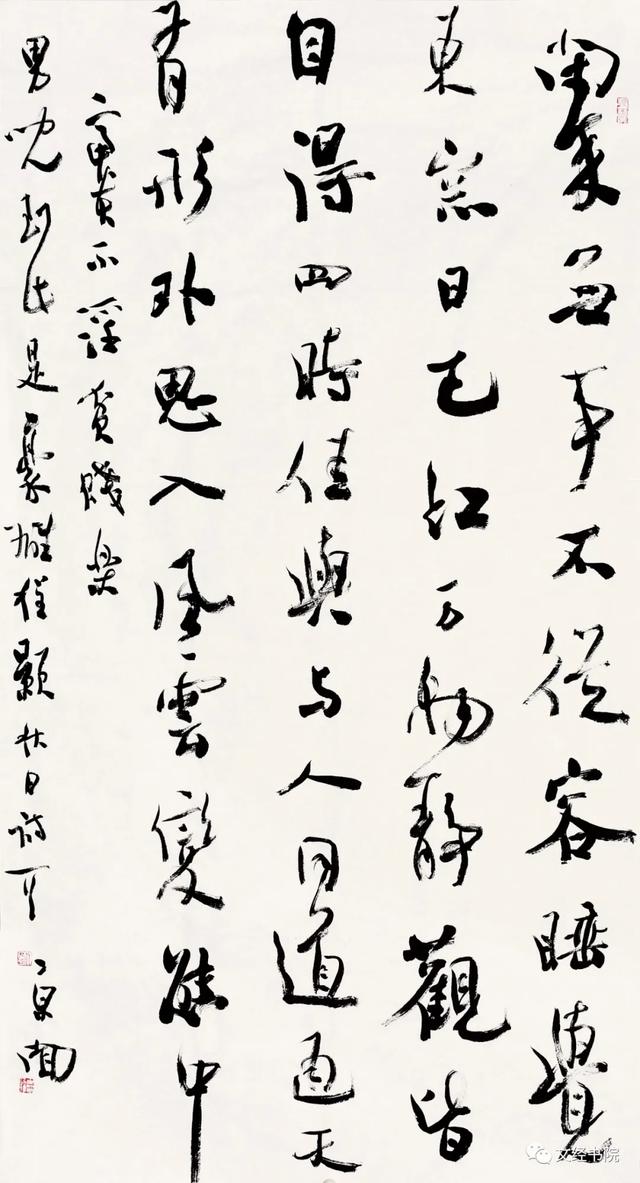 閑來无事不從容睡覺
東窓日已紅万物靜觀皆
自得四時佳興与人同道通天
有形外思入風雲變態中
富貴不淫貧賤樂
男児到此是豪雄程顥秋日詩
文经书院